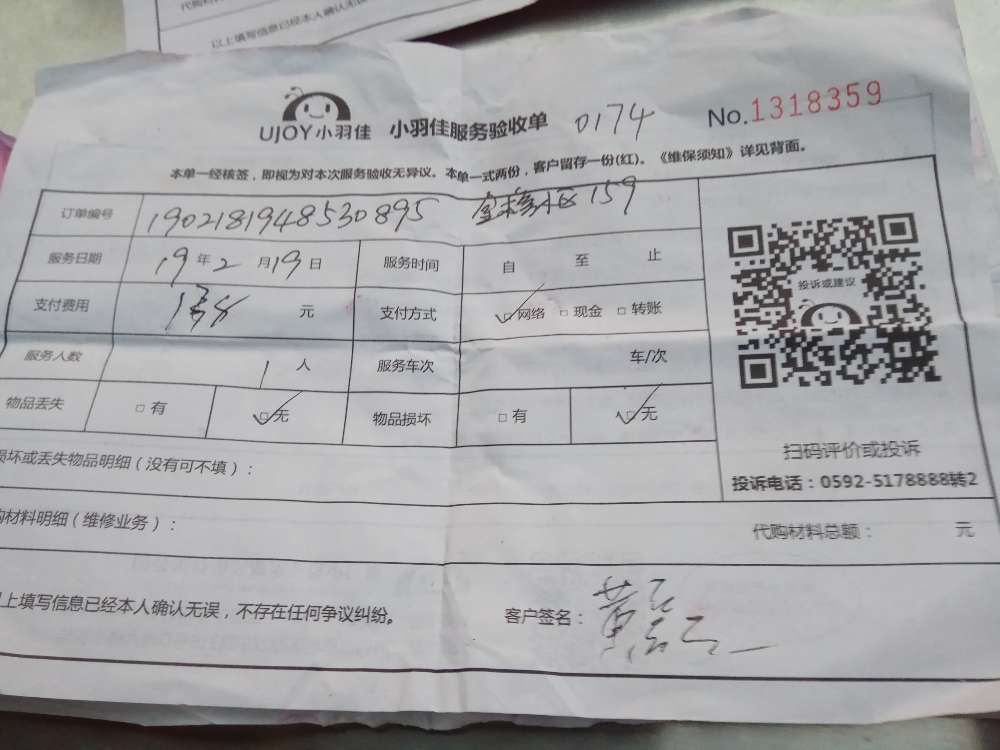 代购材料
以上填写信息已经本人确认无误
UJOY小羽佳 小羽佳服务验收单 0174 No.1318359
本单一经核签，即视为对本次服务验收无异议。本单一式两份，客户留存一份(红)。《维保须知》详见背面。
订单编号 190218194853​0895 159
服务日期 19年2月19日 服务时间 自 至 止
支付费用 元 支付方式 ☑网络 □现金 □转账
服务人数 1人 服务车次 车/次
物品丢失 □有 ☑无 物品损坏 □有 ☑无
投诉或建议
扫码评价或投诉
投诉电话：0592-5178888转2
损坏或丢失物品明细（没有可不填）：
购材料明细（维修业务）：
代购材料总额： 元
上填写信息已经本人确认无误，不存在任何争议纠纷。 客户签名：黄